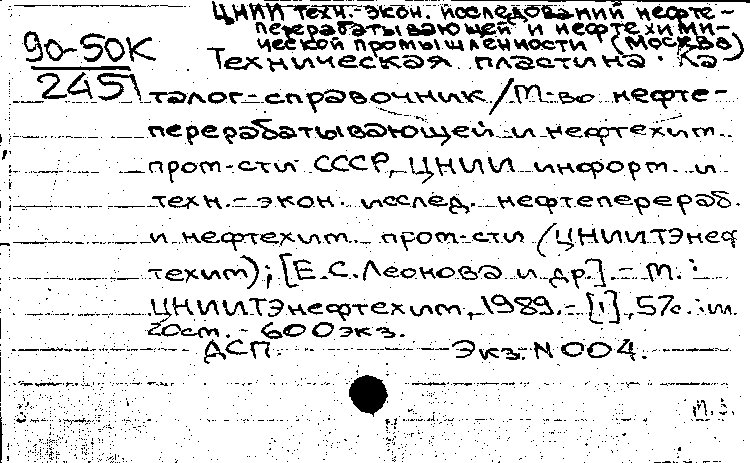 ЦНИИ техн.-экон. исследований нефте-
перерабатывающей и нефтехими-
ческой промышленности (Москва)
90-50К
2451
Техническая пластина. Ка-
талог-справочник/М-во нефте-
перерабатывающей и нефтехим.
пром-сти СССР, ЦНИИ информ. и
техн.-экон. исслед. нефтеперераб.
и нефтехим. пром-сти (ЦНИИТЭнеф
техим); [Е.С.Леонова и др.].- М.:
ЦНИИТЭнефтехим, 1989.- [1], 57с.: ил.
20см. - 600экз.
ДСП. Экз. N 004.